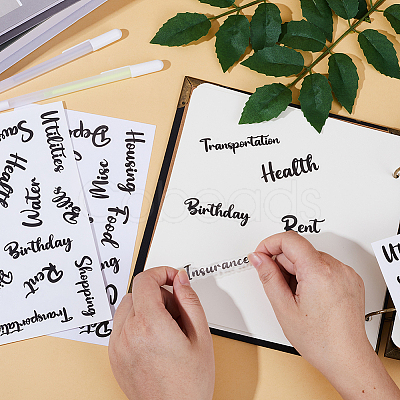 Transportation
Health
Birthday
Rent
Insurance
Utilities
Health
Water
Bills
Birthday
Rent
Transportation
Housing
Misc
Food
Shopping